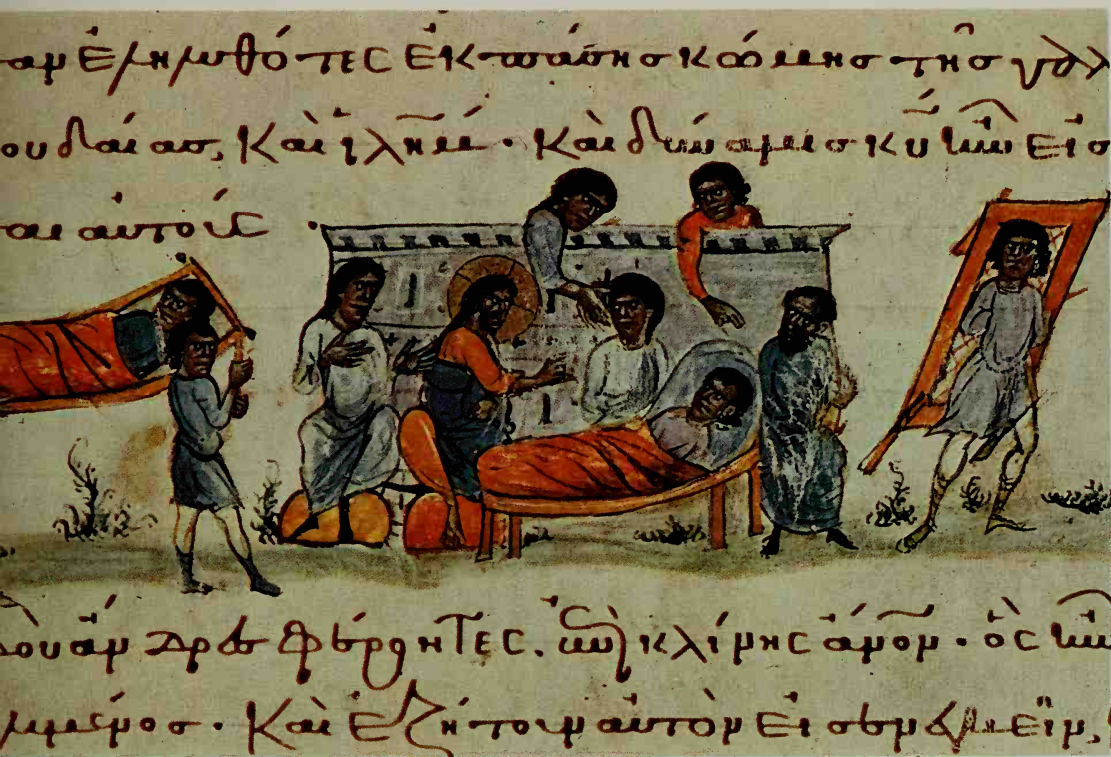 αν ἐληλυθότες ἐκ πάσης κώμης τῆς γαλ
ουδαίας, καὶ ἰλη̅μ · καὶ δύναμις κυ̅ ἦν εἰς
αι αὐτούς
δοὺ ἄνδρες φέροντες, ἐπὶ κλίνης ἄνο̅ν · ὃς ἦν
υμένος · καὶ ἐζήτουν αὐτὸν εἰσενεγκεῖν,